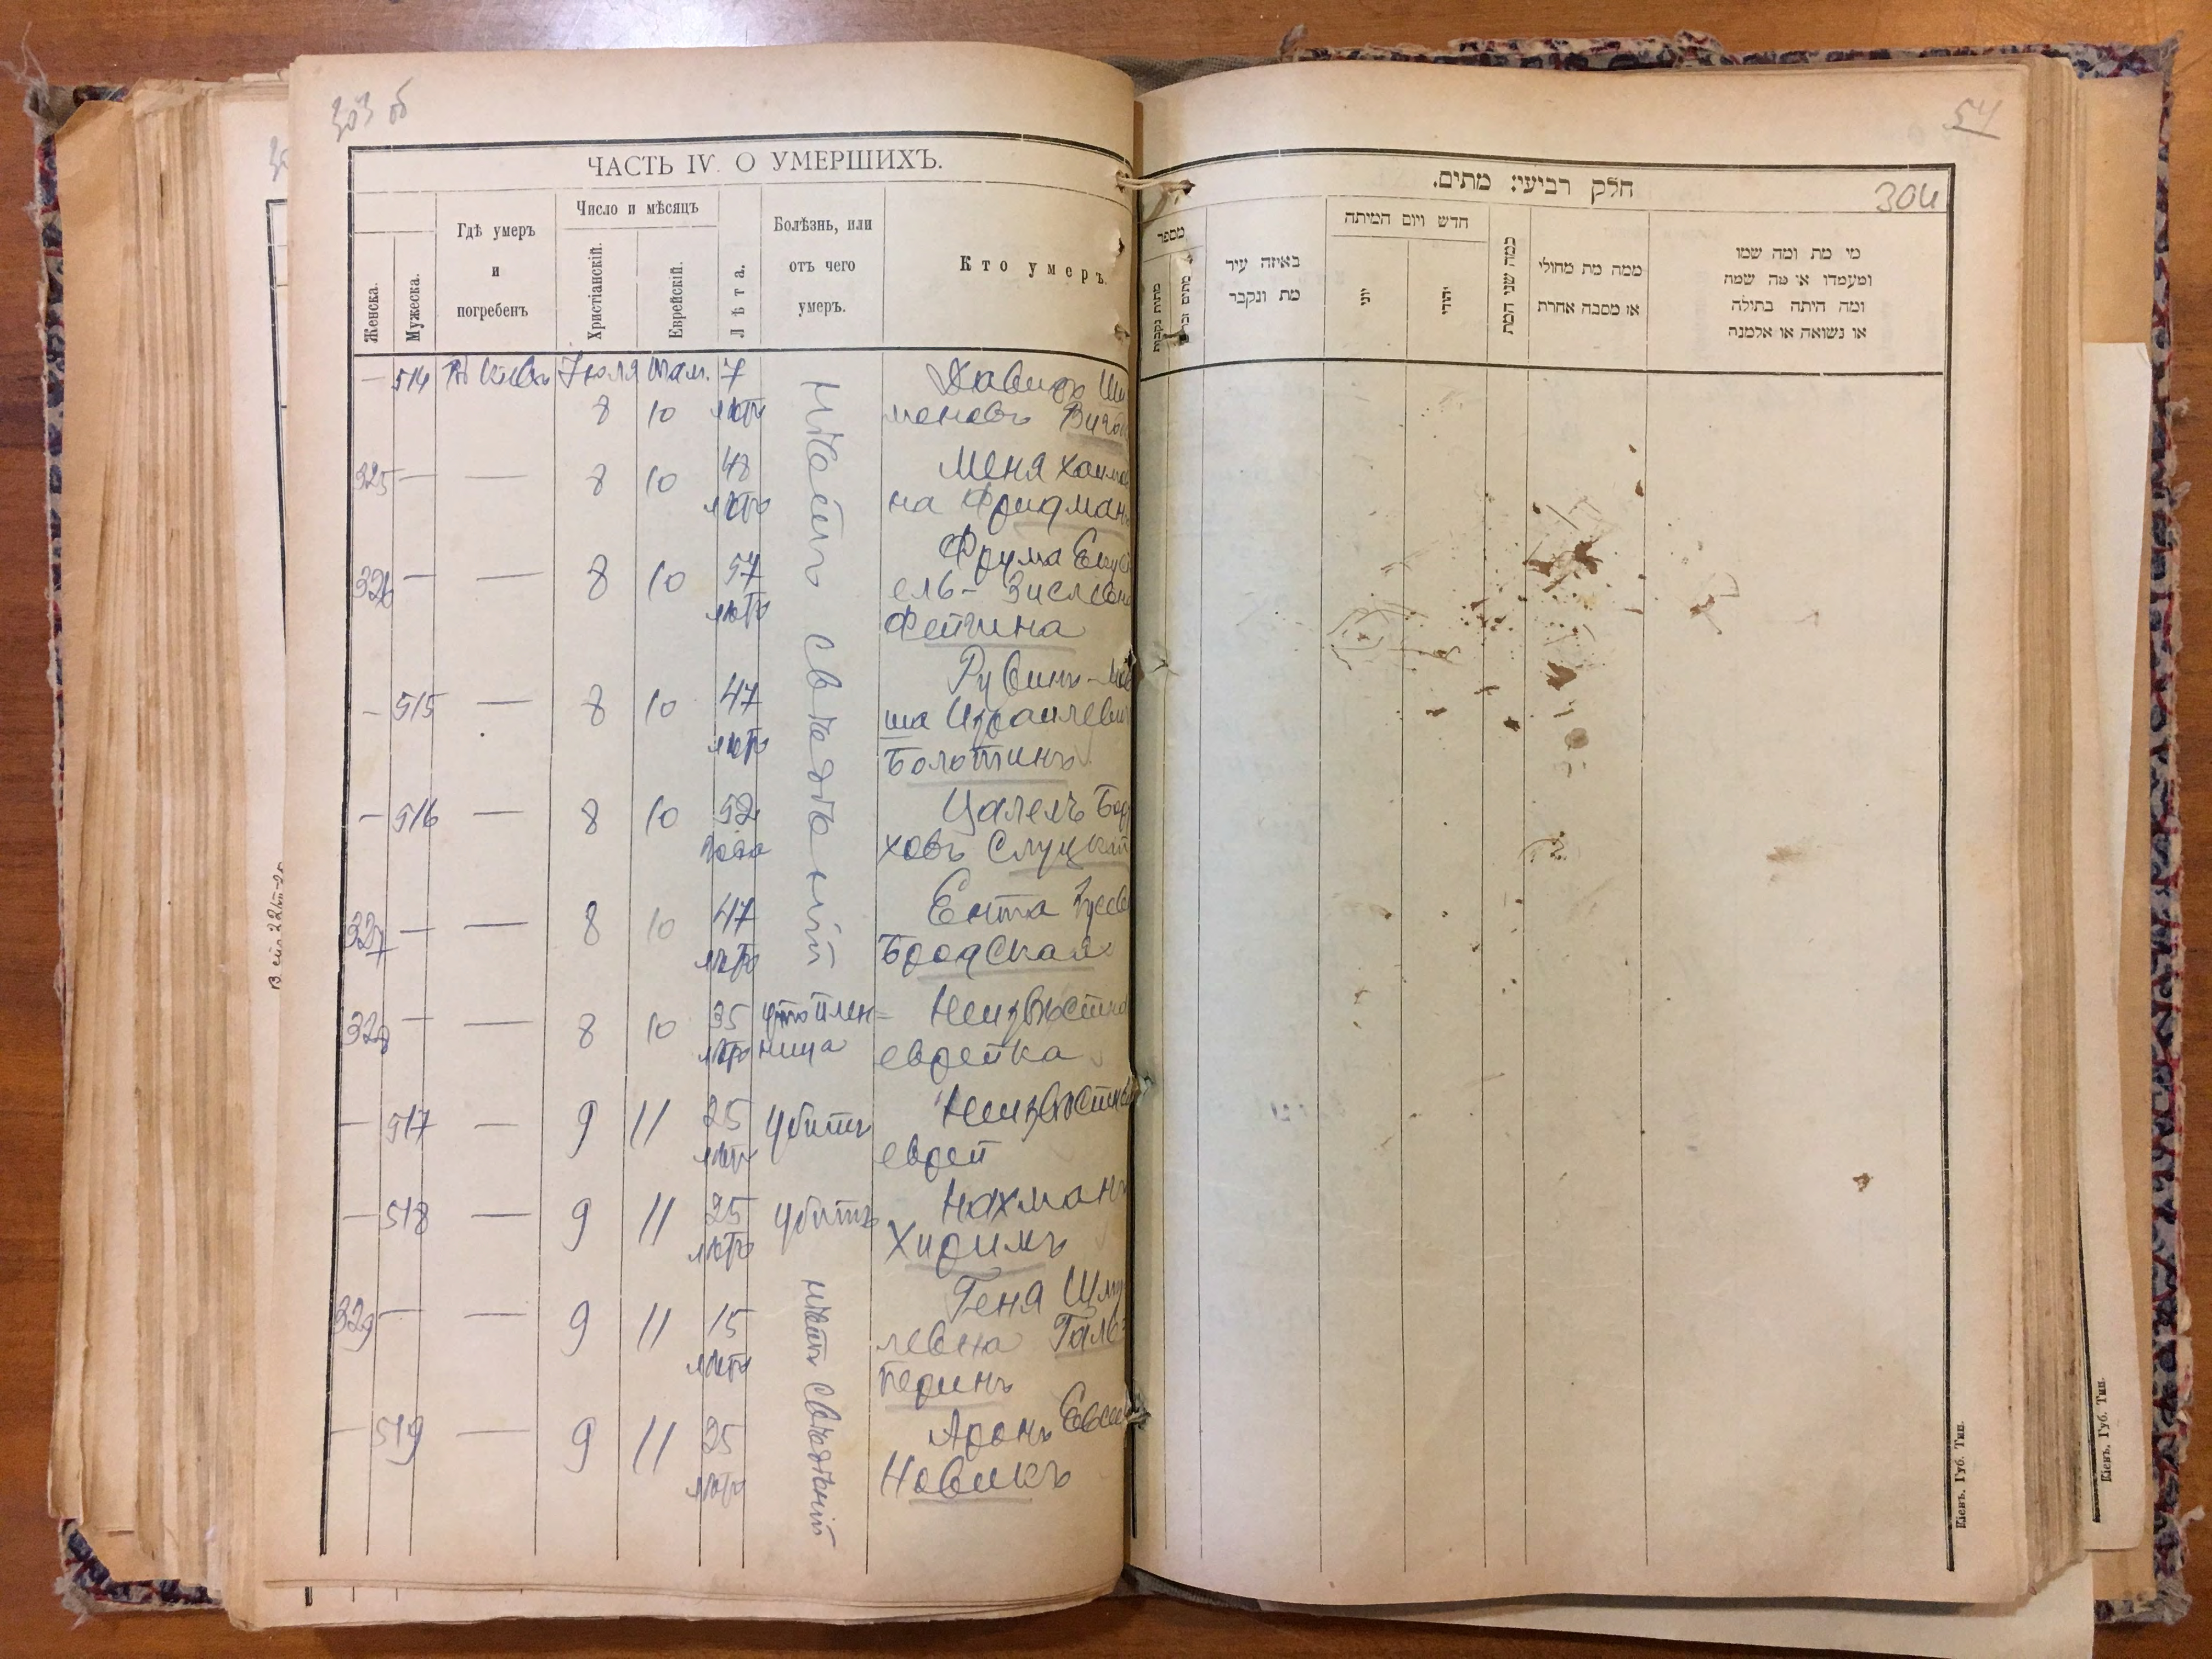 303 об
ЧАСТЬ IV. О УМЕРШИХЪ.
Женска.
Мужеска.
Гдѣ умеръ
и
погребенъ
Число и мѣсяцъ
Христіанскій.
Еврейскій.
Лѣта.
Болѣзнь, или
отъ чего
умеръ.
Кто умеръ.
— 514 Въ Кіевѣ Іюля Там. 7 Давидъ
8 10 лѣтъ
325 — — 8 10 48 Меня
лѣтъ на Фридманъ
326 — — 8 10 57 Фрума
лѣтъ ель-
Фейгина
— 515 — 8 10 47 Рувинъ-
ша
лѣтъ Болотинъ
— 516 — 8 10 52 Цалель
года ховъ Слуцкій
327 — — 8 10 47 Ента
лѣтъ Бродская
нѣтъ свѣдѣній
328 — — 8 10 35 утоплен= Неизвѣстная
лѣтъ ница еврейка
— 517 — 9 11 25 убитъ Неизвѣстный
лѣтъ еврей
— 518 — 9 11 25 убитъ Нахманъ
лѣтъ
329 — — 9 11 15 Геня Шму
левна Галь=
лѣтъ перинъ
— 519 — 9 11 25 Аронъ
лѣтъ Новикъ
нѣтъ свѣдѣній
54
304
חלק רביעי: מתים.
מספר
מתות נקבות
מתים זכרים
באיזה עיר
מת ונקבר
חדש ויום המיתה
יוני
יהודי
כמה שני המת
ממה מת מחולי
או מסבה אחרת
מי מת ומה שמו
ומעמדו או מה שמה
ומה היתה בתולה
או נשואה או אלמנה
Кіевъ, Губ. Тип.
Кіевъ, Губ. Тип.